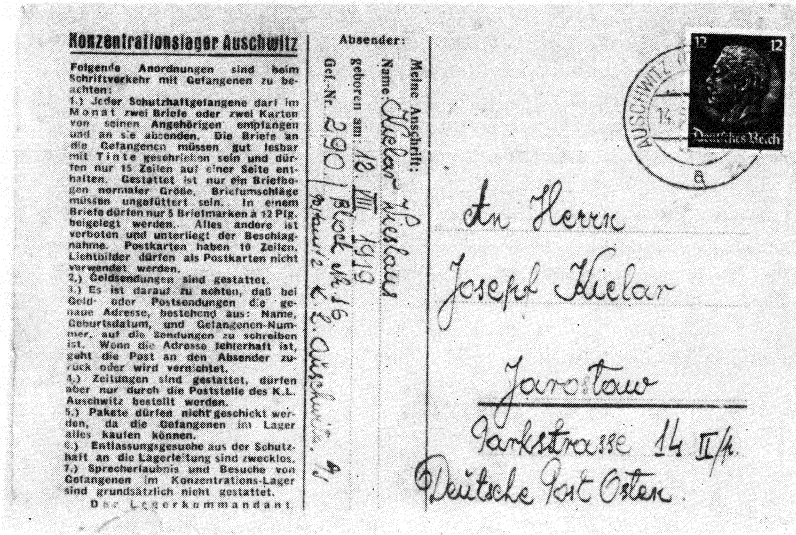 Konzentrationslager Auschwitz
Folgende Anordnungen sind beim
Schriftverkehr mit Gefangenen zu be-
achten:
1.) Jeder Schutzhaftgefangene darf im
Monat zwei Briefe oder zwei Karten
von seinen Angehörigen empfangen
und an sie absenden. Die Briefe an
die Gefangenen müssen gut lesbar
mit Tinte geschrieben sein und dür-
fen nur 15 Zeilen auf einer Seite ent-
halten. Gestattet ist nur ein Briefbo-
gen normaler Größe. Briefumschläge
müssen ungefüttert sein. In einem
Briefe dürfen nur 5 Briefmarken à 12 Pfg.
beigelegt werden. Alles andere ist
verboten und unterliegt der Beschlag-
nahme. Postkarten haben 10 Zeilen.
Lichtbilder dürfen als Postkarten nicht
verwendet werden.
2.) Geldsendungen sind gestattet.
3.) Es ist darauf zu achten, daß bei
Geld- oder Postsendungen die ge-
naue Adresse, bestehend aus: Name,
Geburtsdatum, und Gefangenen-Num-
mer, auf die Sendungen zu schreiben
ist. Wenn die Adresse fehlerhaft ist,
geht die Post an den Absender zu-
rück oder wird vernichtet.
4.) Zeitungen sind gestattet, dürfen
aber nur durch die Poststelle des K.L.
Auschwitz bestellt werden.
5.) Pakete dürfen nicht geschickt wer-
den, da die Gefangenen im Lager
alles kaufen können.
6.) Entlassungsgesuche aus der Schutz-
haft an die Lagerleitung sind zwecklos.
7.) Sprecherlaubnis und Besuche von
Gefangenen im Konzentrations-Lager
sind grundsätzlich nicht gestattet.
Der Lagerkommandant
Absender:
Meine Anschrift:
Name Kielar Wieslaus
geboren am: 12. VIII 1919
Gef.-Nr. 290 / Block Nr. 16
K. L. Auschwitz
AUSCHWITZ
14.
a
12 12
Deutsches Reich
An Herrn
Joseph Kielar
Jarosław
Parkstrasse 14 II/p.
Deutsche Post Osten.